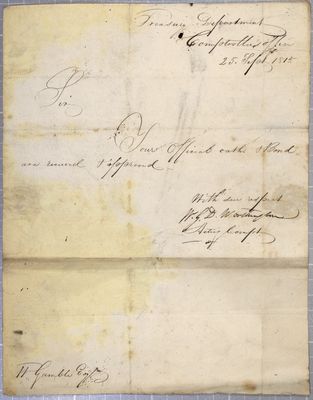 Treasury Department
Comptrollers Office
25. Sept. 1815
Sir
Your Official oath & Bond
are received & approved
With due respect
W. G. D. Worthington
Acting Compt
W Gamble Esqr